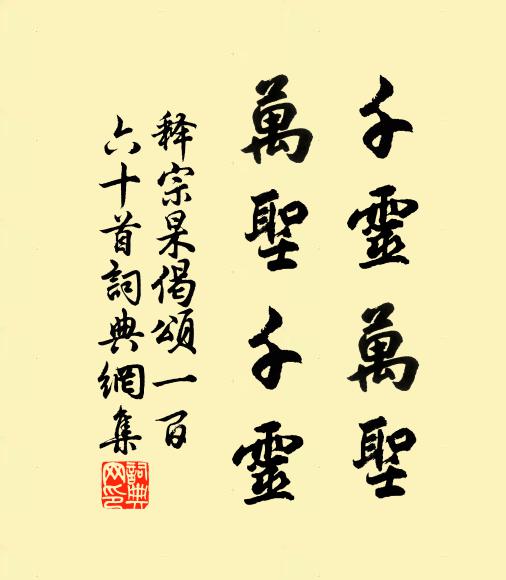 千靈萬聖
萬聖千靈
释宗杲偈頌一百
六十首詞典網集
詞典网印